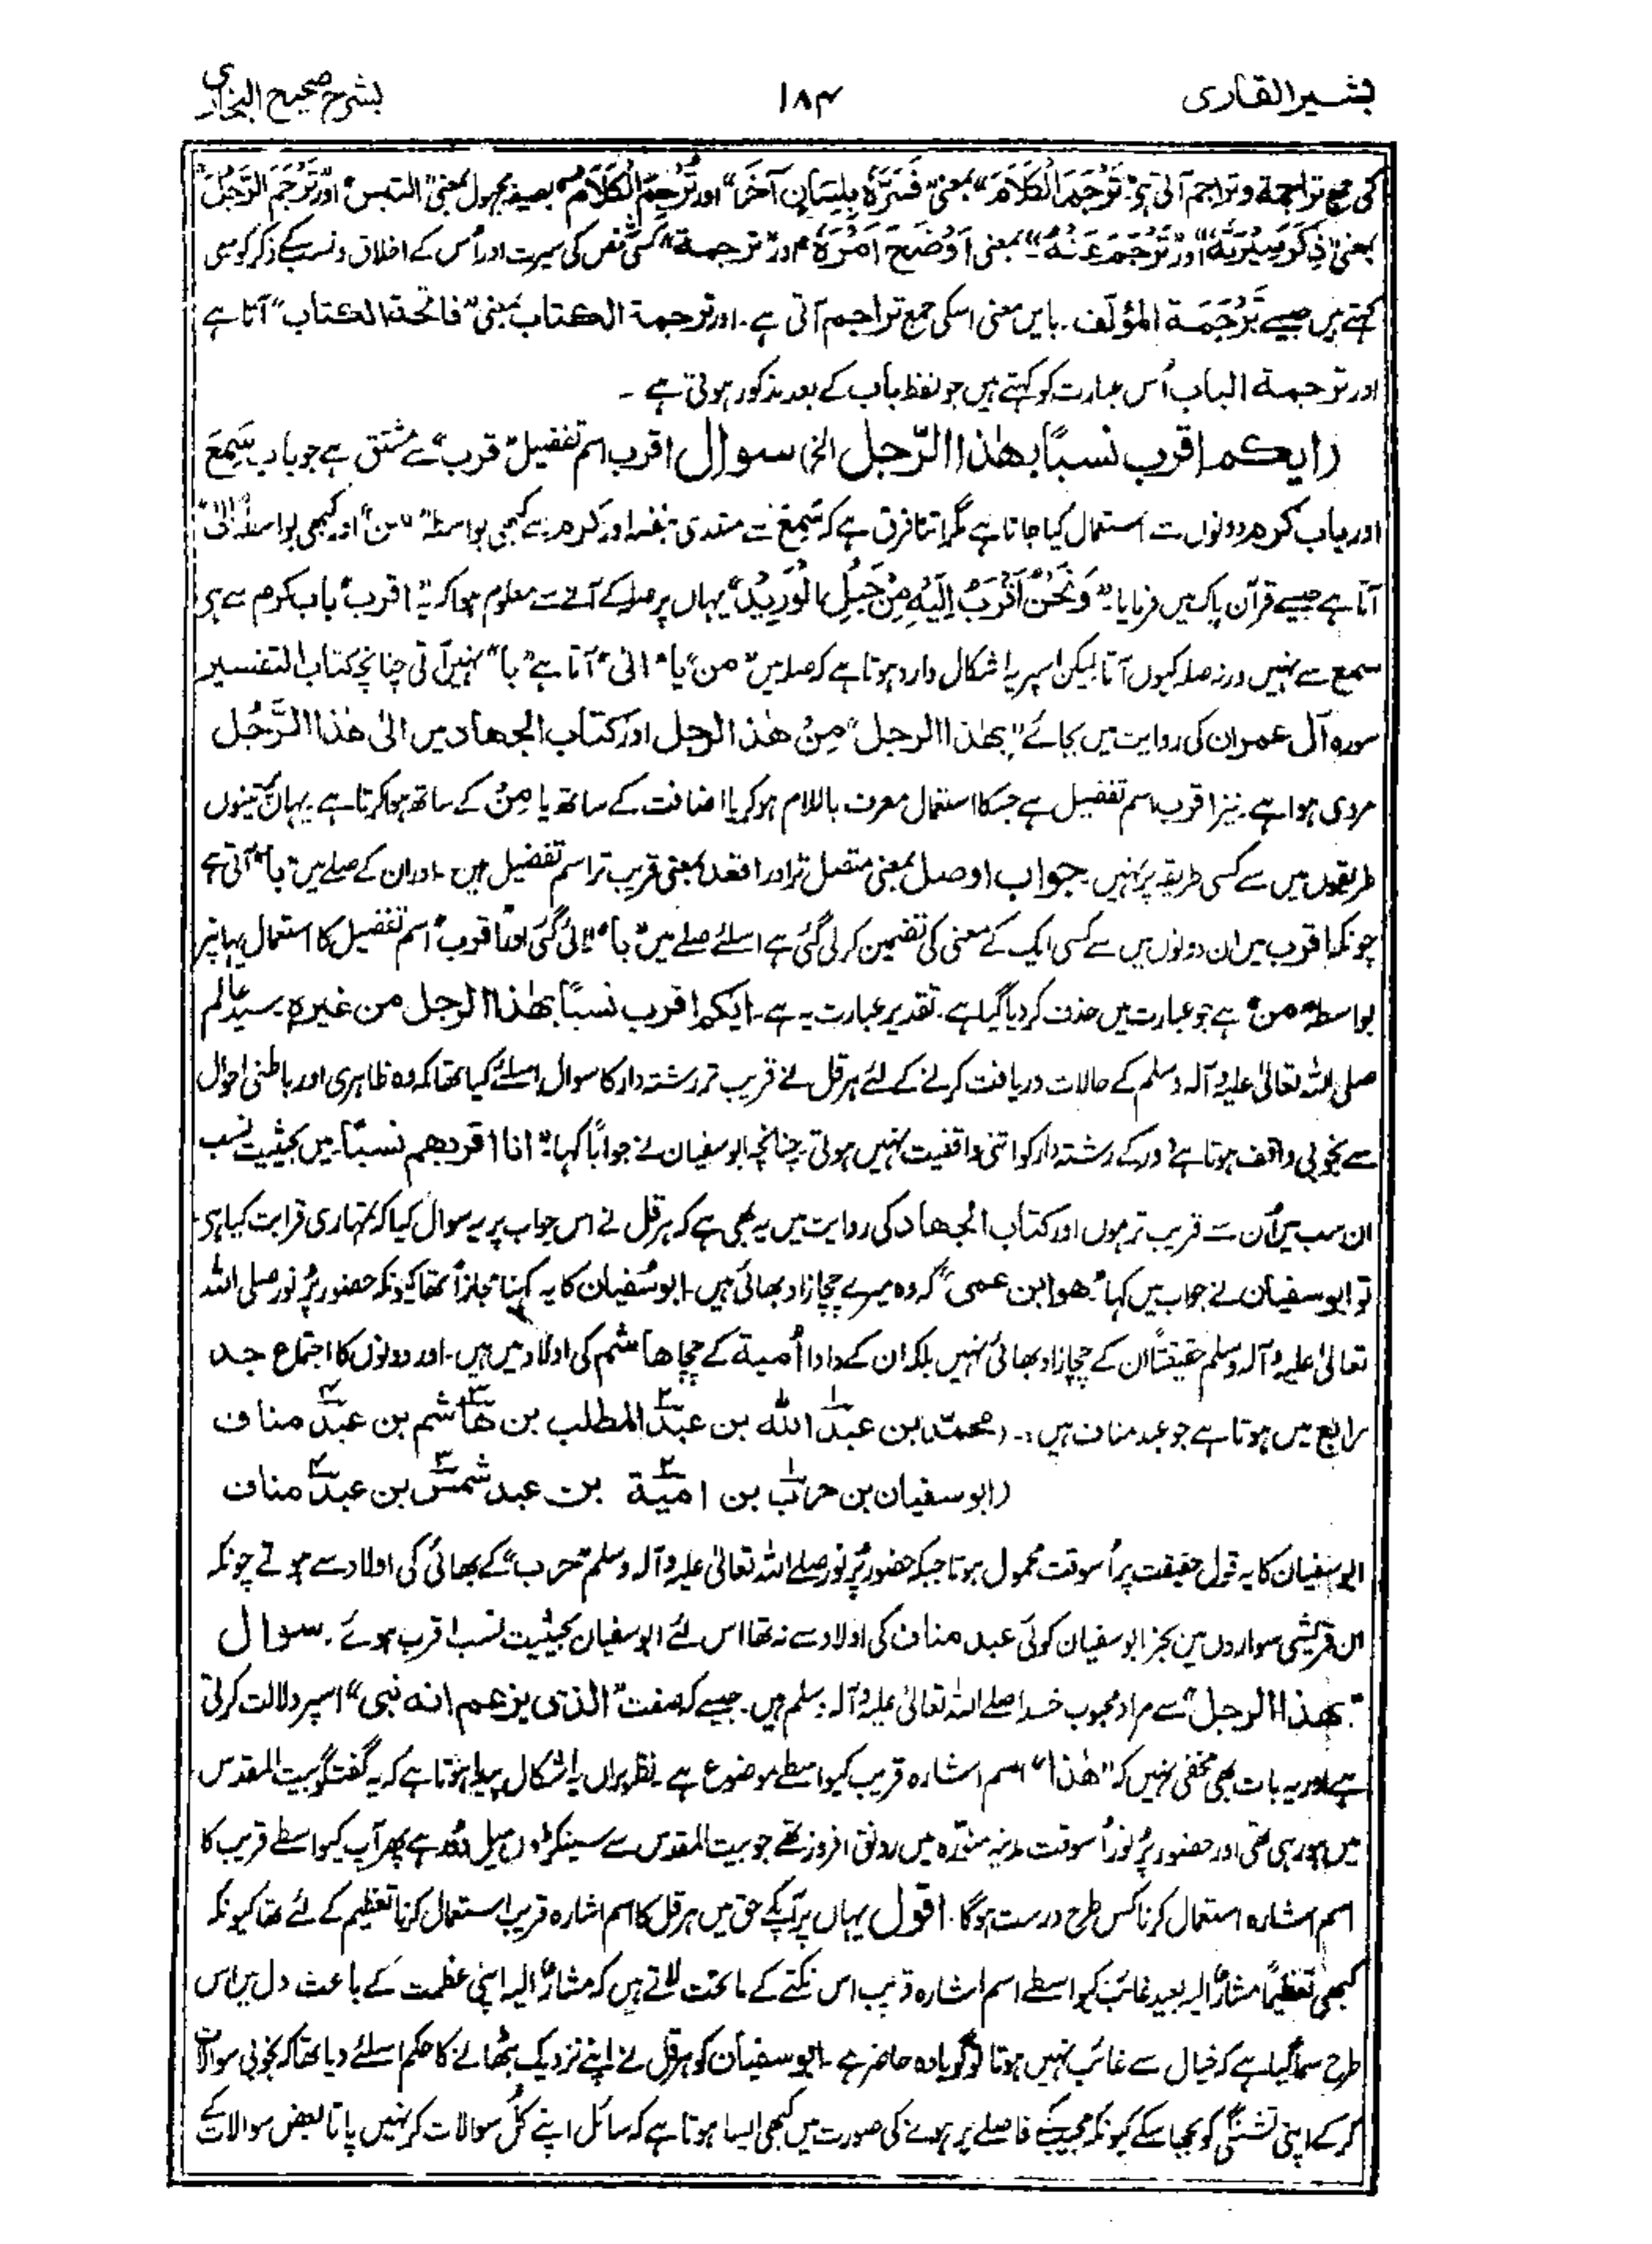 بشیر القاری ۱۸۴ بشرح صحیح البخاری
کی جمع تراجمة و تراجم آتی ہے۔ "تَرْجَمَ الْکَلَامَ" بمعنی "فَسَّرَہٗ بِلِسَانٍ آخَرَ" اور "تُرْجِمَ الْکَلَامُ" بصیغہ مجہول بمعنی "التبس" اور "تَرْجَمَ الرَّجُلَ"
بمعنی "ذَکَرَ سِیْرَتَہٗ" اور "تَرْجَمَ عَنْہُ" بمعنی اَوْضَحَ اَمْرَہٗ اور "ترجمة" کسی شخص کی سیرت اور اُس کے اخلاق و نسب کے ذکر کو بھی
کہتے ہیں جیسے تَرْجَمَة المؤلّف۔ بایں معنی اسکی جمع تراجم آتی ہے۔ اور ترجمة الکتاب بمعنی "فاتحة الکتاب" آتا ہے
اور ترجمة الباب اُس عبارت کو کہتے ہیں جو لفظ باب کے بعد مذکور ہوتی ہے ۔
(ایکم اقرب نسبًا بھٰذا الرّجل الخ) سوال اقرب اسم تفضیل "قرب" سے مشتق ہے جو باب سَمِعَ
اور باب کرم دونوں سے استعمال کیا جاتا ہے مگر اتنا فرق ہے کہ سَمِعَ سے متعدی بنفسہ اور کرم سے کبھی بواسطہ "من" اور کبھی بواسطہ "الیٰ"
آتا ہے جیسے قرآن پاک میں فرمایا "وَنَحْنُ اَقْرَبُ اِلَیْہِ مِنْ حَبْلِ الْوَرِیْدِ" یہاں پر صلہ کے آنے سے معلوم ہوا کہ یہ "اقرب" باب کرم سے ہی
سمع سے نہیں ورنہ صلہ کیوں آتا لیکن اسپر یہ اشکال وارد ہوتا ہے کہ صلہ میں "من" یا "الیٰ" آتا ہے "با" نہیں آتی چنانچہ کتاب التفسیر
سورہ آل عمران کی روایت میں بجائے "بھٰذا الرجل" مِنْ ھٰذا الرجل اور کتاب الجھاد میں الیٰ ھٰذا الرَّجُل
مروی ہوا ہے۔ نیز اقرب اسم تفضیل ہے جسکا استعمال معرف باللام ہوکر یا اضافت کے ساتھ یا مِنْ کے ساتھ ہوا کرتا ہے۔ یہاں تینوں
طریقوں میں سے کسی طریقہ پر نہیں۔ جواب اوصل بمعنی متصل تر اور اقعد بمعنی قریب تر اسم تفضیل ہیں۔ اور ان کے صلے میں "با" آتی ہے
چونکہ اقرب میں ان دونوں میں سے کسی ایک کے معنی کی تضمین کرلی گئی ہے اسلئے صلے میں "با" لائی گئی اور "اقرب" اسم تفضیل کا استعمال یہاں پر
بواسطہ "من" ہے جو عبارت میں حذف کردیا گیا ہے۔ تقدیر عبارت یہ ہے۔ ایکم اقرب نسبًا بھٰذا الرجل من غیرہٖ۔ سید عالم
صلی اللہ تعالیٰ علیہ وآلہ وسلم کے حالات دریافت کرنے کے لئے ہرقل نے قریب تر رشتہ دار کا سوال اسلئے کیا تھا کہ وہ ظاہری اور باطنی احوال
سے بخوبی واقف ہوتا ہے دور کے رشتہ دار کو اتنی واقفیت نہیں ہوتی۔ چنانچہ ابوسفیان نے جوابًا کہا "انا اقربھم نسبًا" میں بحیثیت نسب
ان سب میں اُن سے قریب تر ہوں اور کتاب الجھاد کی روایت میں یہ بھی ہے کہ ہرقل نے اس جواب پر یہ سوال کیا کہ تمہاری قرابت کیا ہی
تو ابوسفیان نے جواب میں کہا "ھو ابن عمی" کہ وہ میرے چچازاد بھائی ہیں۔ ابوسُفیان کا یہ کہنا مجازاً تھا کیونکہ حضور پُرنور صلی اللہ
تعالیٰ علیہ وآلہ وسلم حقیقتًا ان کے چچازاد بھائی نہیں بلکہ ان کے دادا اُمیة کے چچا ھاشم کی اولاد میں ہیں۔ اور دونوں کا اجتماع جد
رابع میں ہوتا ہے جو عبد مناف ہیں:۔ (محمّد ابن عبد۱ اللّٰہ بن عبد۲ المطلب بن ھاشم۳ بن عبد۴ مناف
(ابوسفیان بن حرب۱ بن امیة۲ بن عبد شمس۳ بن عبد۴ مناف
ابوسفیان کا یہ قول حقیقت پر اُسوقت محمول ہوتا جبکہ حضور پُرنور صلے اللہ تعالیٰ علیہ وآلہ وسلم "حرب" کے بھائی کی اولاد سے ہوتے چونکہ
ان قریشی سواروں میں بجز ابوسفیان کوئی عبد مناف کی اولاد سے نہ تھا اس لئے ابوسفیان بحیثیت نسب اقرب ہوئے۔ سوال
"بھٰذا الرجل" سے مراد محبوب خدا صلے اللہ تعالیٰ علیہ وآلہ وسلم ہیں۔ جیسے کہ صفت "الذی یزعم انہ نبی" اسپر دلالت کرتی
ہے اور یہ بات بھی مخفی نہیں کہ "ھٰذا" اسم اشارہ قریب کیواسطے موضوع ہے نظر براں یہ اشکال پیدا ہوتا ہے کہ یہ گفتگو بیت المقدس
میں ہورہی تھی اور حضور پُرنور اُسوقت مدینہ منوّرہ میں رونق افروز تھے جو بیت المقدس سے سینکڑوں میل دُور ہے پھر آپ کیواسطے قریب کا
اسم اشارہ استعمال کرنا کس طرح درست ہوگا۔ اقول یہاں پر آپ کے حق میں ہرقل کا اسم اشارہ قریب استعمال کرنا تعظیم کے لئے تھا کیونکہ
کبھی تعظیمًا مشارٌ الیہ بعید غائب کیواسطے اسم اشارہ قریب اس نکتے کے ماتحت لاتے ہیں کہ مشارٌ الیہ اپنی عظمت کے باعث دل میں اس
طرح سما گیا ہے کہ خیال سے غائب نہیں ہوتا تو گویا وہ حاضر ہے۔ ابوسفیان کو ہرقل نے اپنے نزدیک بٹھانے کا حکم اسلئے دیا تھا کہ بخوبی سوالات
کرکے اپنی تشنگی کو بجھا سکے کیونکہ مجیب کے فاصلے پر ہونے کی صورت میں کبھی ایسا ہوتا ہے کہ سائل اپنے کُل سوالات کر نہیں پاتا بعض سوالات کے